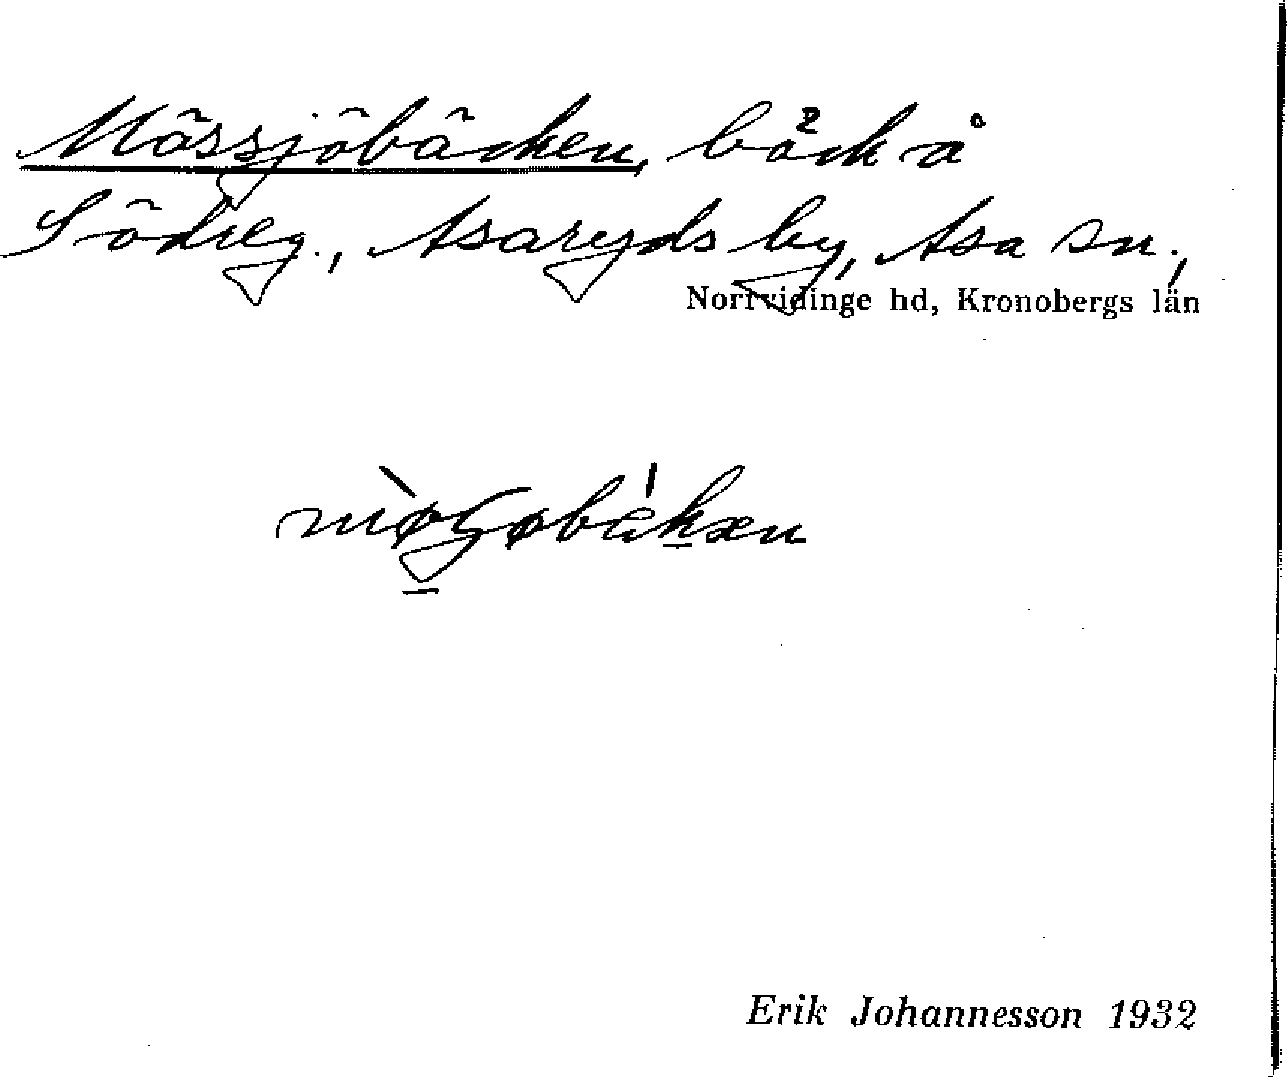 Mössjöbäcken, bäck å
Södreg., Asaryds by, Asa sn.,
Norrvidinge hd, Kronobergs län
Erik Johannesson 1932